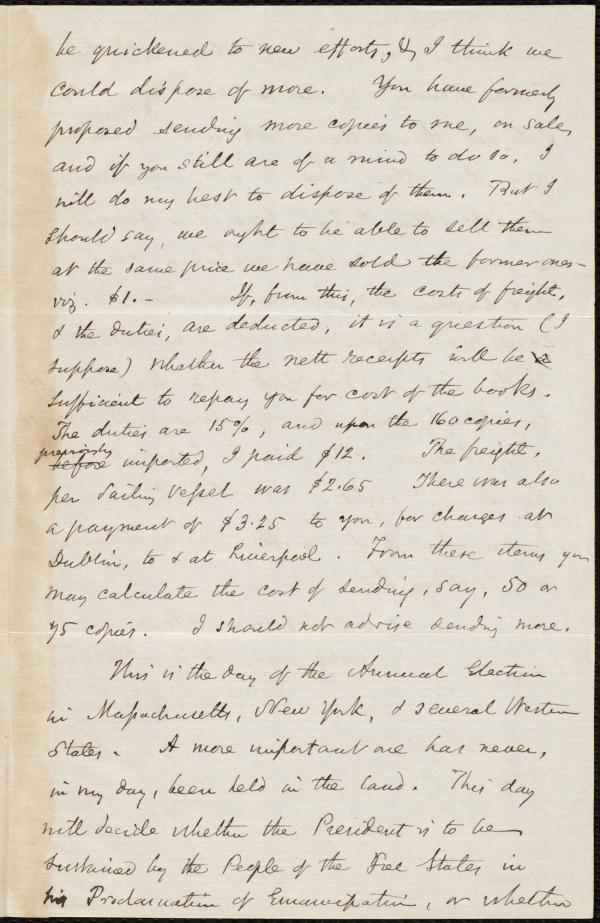 be quickened to new efforts, & I think we
could dispose of more. You have formerly
proposed sending more copies to me, on sale,
and if you still are of a mind to do so, I
will do my best to dispose of them. But I
should say, we ought to be able to sell them
at the same price we have sold the former ones—
viz. $1.— If, from this, the costs of freight,
& the duties, are deducted, it is a question (I
suppose) whether the nett receipts will be
sufficient to repay you for cost of the books.
The duties are 15%, and upon the 160 copies,
previously
before imported, I paid $12. The freight,
per sailing vessel was $2.65 There was also
a payment of $3.25 to you, for charges at
Dublin, to & at Liverpool. From these items you
may calculate the cost of sending, say, 50 or
75 copies. I should not advise sending more.
This is the day of the Annual Election
in Massachusetts, New York, & several Western
States. A more important one has never,
in my day, been held in the land. This day
will decide whether the President is to be
sustained by the People of the Free States in
his Proclamation of Emancipation, or whether